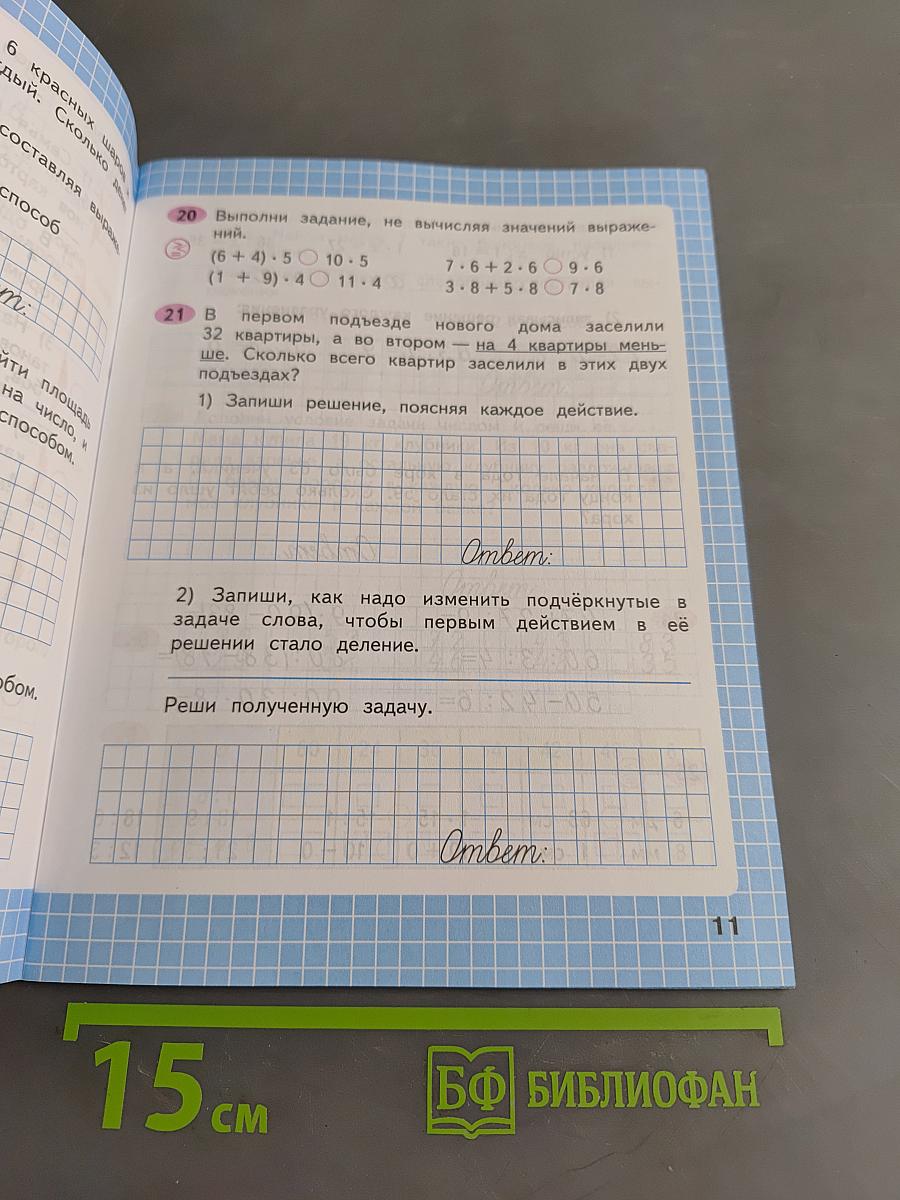 6 красных
Сколько
составляя
способ
площадь
на число, и
способом.
20 Выполни задание, не вычисляя значений выраже-
ний.
(6 + 4) · 5 ○ 10 · 5
7 · 6 + 2 · 6 ○ 9 · 6
(1 + 9) · 4 ○ 11 · 4
3 · 8 + 5 · 8 ○ 7 · 8
21 В первом подъезде нового дома заселили
32 квартиры, а во втором — на 4 квартиры мень-
ше. Сколько всего квартир заселили в этих двух
подъездах?
1) Запиши решение, поясняя каждое действие.
Ответ:
2) Запиши, как надо изменить подчёркнутые в
задаче слова, чтобы первым действием в её
решении стало деление.
Реши полученную задачу.
Ответ:
11
15 см
БФ БИБЛИОФАН